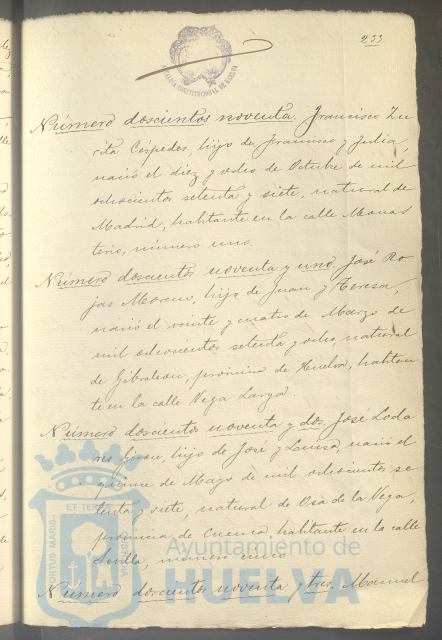 233
ALCALDIA CONSTITUCIONAL DE HUELVA
Número doscientos noventa. Francisco Zu
rita Céspedes, hijo de Francisco y Julia,
nació el diez y ocho de Octubre de mil
ochocientos setenta y siete, natural de
Madrid, habitante en la calle Monas
terio, número uno.
Número doscientos noventa y uno. José Ro
jas Moreno, hijo de Juan y Teresa,
nació el veinte y cuatro de Marzo de
mil ochocientos setenta y ocho, natural
de Gibraleon, provincia de Huelva, habitan
te en la calle Vega Larga.
Número doscientos noventa y dos. José Loda
res hijo de José y Luisa, nació el
quince de Mayo de mil ochocientos se
tenta y siete, natural de Osa de la Vega,
provincia de Cuenca habitante en la calle
Sevilla, número cinco
Número doscientos noventa y tres. Manuel
PORTUS MARIS ET TERRAE CUSTODIA
Ayuntamiento de
HUELVA